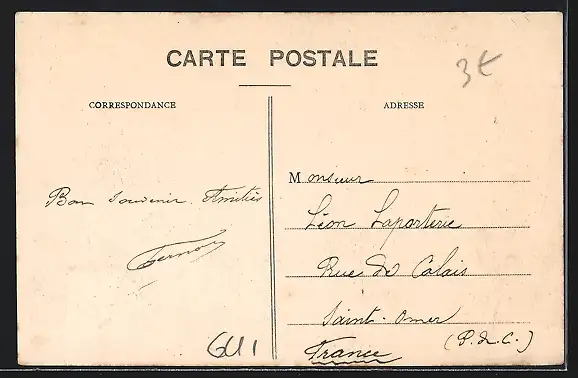 CARTE POSTALE
3€
CORRESPONDANCE
ADRESSE
Bon souvenir. Amitiés
Monsieur
Léon Laporterie
Rue de Calais
Saint-Omer
(P.d.C.)
France